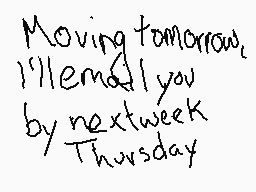 Moving tomorrow,
I'll email you
by next week
Thursday